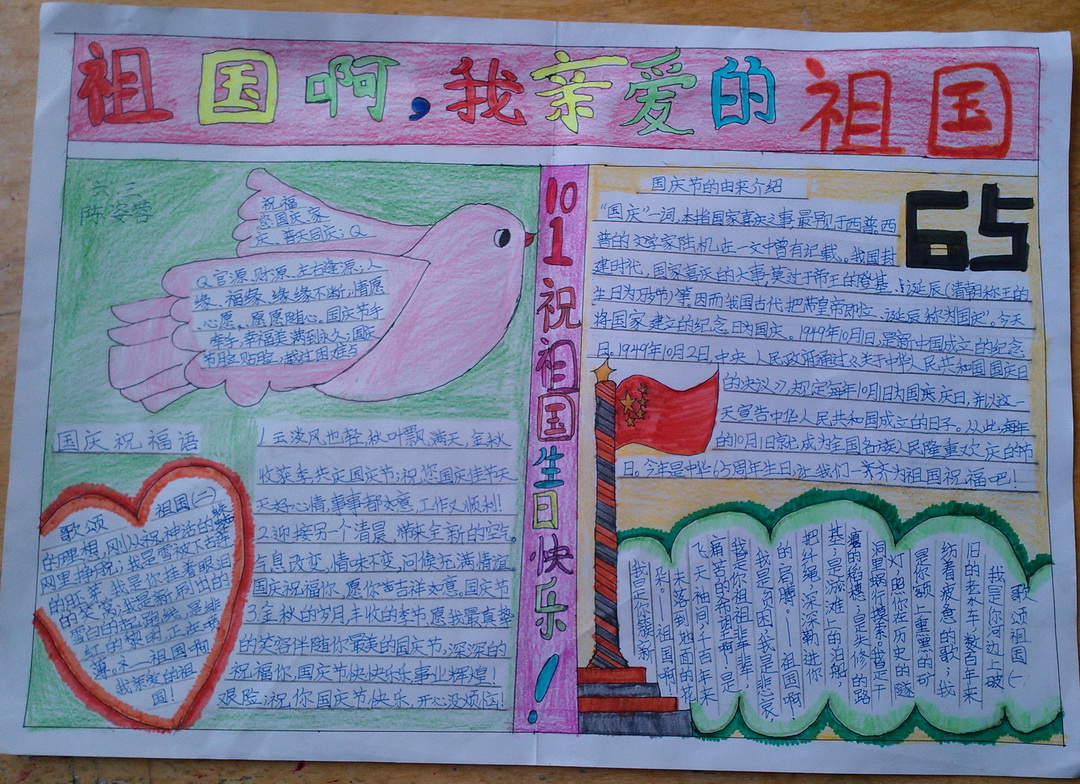 祖国啊,我亲爱的祖国
六三
陈姿蓉
祝福
您国庆家
庆、普天同庆;Q
Q官源、财源、左右逢源;人
缘、福缘、缘缘不断;情愿
心愿、愿愿随心。国庆节手
牵手,幸福美满到永久;国庆
国庆祝福语
1云淡风也轻,秋叶飘满天,金秋
收获季,共定国庆节;祝您国庆佳节天
天好心情,事事都如意,工作又顺利!
2迎接另一个清晨,带来全新的空气。
气息改变,情味不变,问候充满情谊
国庆祝福你,愿你吉祥如意,国庆节
3金秋的岁月,丰收的季节,愿我最真挚
的笑容伴随你最美的国庆节,深深的
祝福你,国庆节快快乐乐事业辉煌!
祝你国庆节快乐,开心没烦恼!
歌颂祖国(二)
的理想,刚从神话的蛛
网里挣脱;我是雪被下古莲
的胚芽,我是你挂着眼泪
的笑窝;我是新刷出的
雪白的起跑线,是绯
红的黎明,正在喷
薄。——祖国啊
我亲爱的祖
国!
10
1
祝祖国生日快乐!
国庆节的由来介绍
65
“国庆”一词,本指国家喜庆之事,最早见于西晋。西
晋的文学家陆机在一文中曾有记载。我国封
建时代,国家喜庆的大事,莫过于帝王的登基、诞辰(清朝称王的
生日为万岁节)等。因而我国古代把皇帝即位、诞辰称为“国庆”。今天
将国家建立的纪念日为国庆。1949年10月1日,是新中国成立的纪念
日。1949年10月2日,中央人民政府通过《关于中华人民共和国国庆日
的决议》,规定每年10月1日为国庆日,并以这一
天宣告中华人民共和国成立的日子。从此,每年
的10月1日就成为全国各族人民隆重欢庆的节
日。今年是中华65周年生日,让我们一齐齐为祖国祝福吧!
歌颂祖国(一
我是你河边上破
旧的老水车,数百年来
纺着疲惫的歌;我
是你额上熏黑的矿
灯,照你在历史的隧
洞里蜗行摸索;我是干
瘪的稻穗;是失修的路
基;是淤滩上的泊船,
把纤绳深深勒进你
的肩膊;——祖国啊!
我是贫困,我是悲哀
我是你祖祖辈辈
痛苦的希望啊!是
飞天袖间,千百年来
未落到地面的花
朵。——祖国啊
我是你簇新